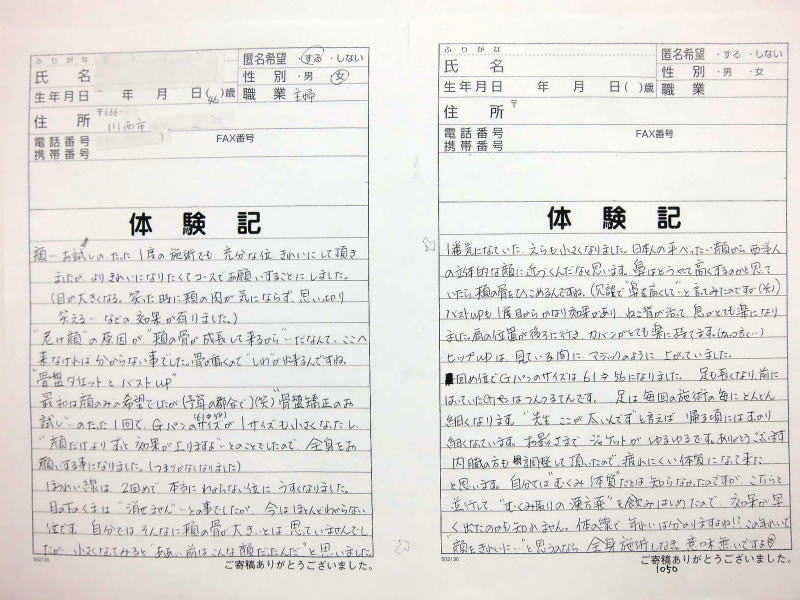 ふりがな
氏名
匿名希望 ・する ・しない
性別 ・男 ・女
生年月日 年 月 日(46)歳
職業 主婦
住所 〒666-
川西市
電話番号
携帯番号
FAX番号
体験記
顔…お試しの、たった1度の施術でも充分な位きれいにして頂き
ましたが、よりきれいになりたくてコースでお願いすることにしました。
(目が大きくなる。笑った時に頬の肉が気にならず、思いっ切り
笑える…などの効果が有りました。)
"老け顔"の原因が"頬の骨が成長して来るから"…だなんて、ここへ
来なければ分からない事でした。骨が動くので"しわ"が出来るんですね。
"骨盤ダイエットとバストup"
最初は顔のみの希望でしたが(予算の都合で)(笑)"骨盤矯正のお
試し"のたった1回で、Gパンのサイズが1サイズも小さくなったし、
(61⇒58)
"顔だけよりずっと効果が上りますよ"とのことでしたので、全身をお
願いする事になりました。(つまづかなくなりました)
ほうれい線は、2回めで本当にわからない位にうすくなりました。
目の下のくまは"消せません"との事でしたが、今はほとんどわからない
位です。自分ではそんなに頬の骨が大きいとは思っていませんでし
たが、小さくなってみると"ああ、前はこんな顔だったんだ"と思いました。
502130
ご寄稿ありがとうございました。
ふりがな
氏名
匿名希望 ・する ・しない
性別 ・男 ・女
生年月日 年 月 日( )歳
職業
住所 〒
電話番号
携帯番号
FAX番号
体験記
1番気になっていた、えらも小さくなりました。日本人の平べったい顔から西洋人
の立体的な顔に近づくんだなと思います。鼻はどうやって高くするのかと思って
いたら、頬の骨をひっこめるんですね。(冗談で"鼻を高くして"と言ってみたのですが(笑))
バストupも1度目からかなり効果があり、ねこ背が治って息がとても楽になり
ました。肩の位置が後ろに行き、カバンがとても楽に持てます。(カッコいい…)
ヒップupは、見ている間に、マジックのように上がっていました。
回め位でGパンのサイズは61⇒56になりました。足も長くなり、前に
はいていたGパンはつんつるてんです。足は毎回の施術の毎にどんどん
細くなります。"先生ここが太いんです"と言えば帰る頃にはすっかり
細くなっています。お影さまでジャケットがゆるゆるです。ありがとうございます
内臓の方も調整して頂いたので疲れにくい体質になって来た
と思います。自分では"むくみ体質"だとは知らなかったのですが、こちらと
並行して"むくみ取りの漢方薬"も飲みはじめたので、効果が早
く出たのかも知れません。体の線で年れいは分かりますよね!?この年れいで
"顔をきれいに…"と思うのなら、全身施術しなきゃ意味無いですよ
502130
ご寄稿ありがとうございました。
1050